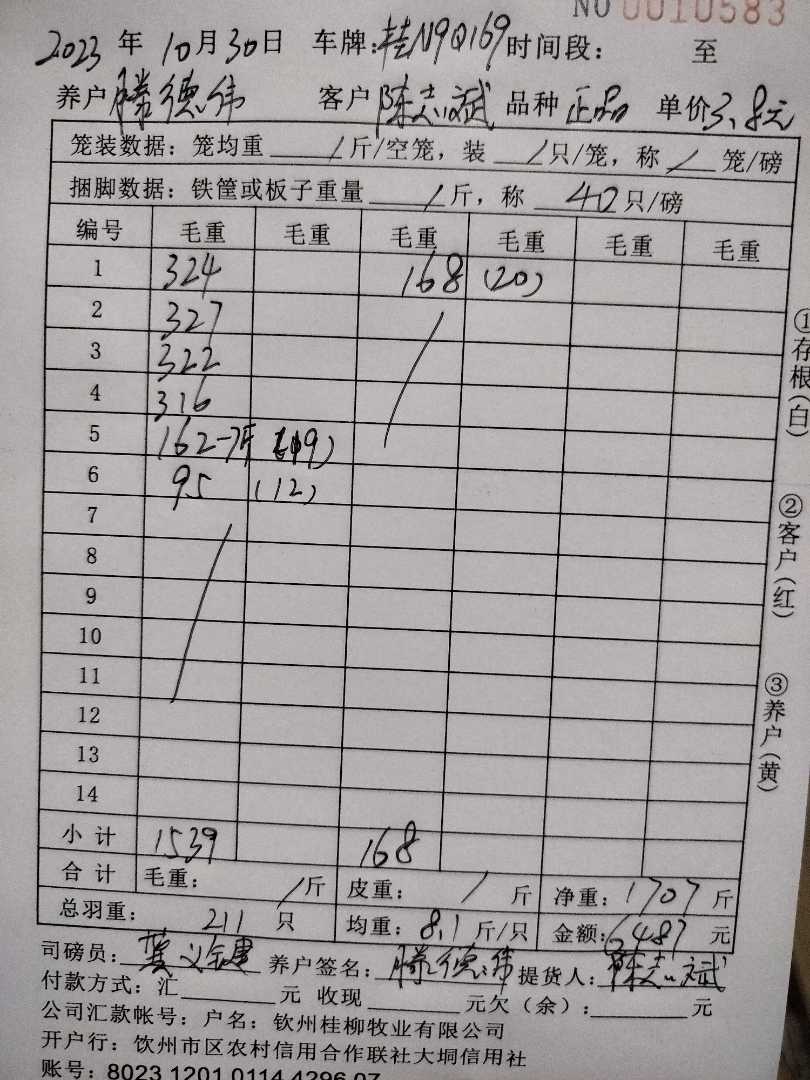 NO 0010583
2023 年 10 月 30 日 车牌:桂N9Q169 时间段: 至
养户 滕德伟 客户 陈志斌 品种 正品 单价 3.8元
笼装数据: 笼均重 / 斤/空笼, 装 / 只/笼, 称 / 笼/磅
捆脚数据: 铁筐或板子重量 / 斤, 称 40 只/磅
编号 毛重 毛重 毛重 毛重 毛重 毛重
1 324 168 (20)
2 327
3 322
4 316
5 162 (19)
6 95 (12)
7
8
9
10
11
12
13
14
小 计 1539 168
合 计 毛重: / 斤 皮重: / 斤 净重: 1707 斤
总羽重: 211 只 均重: 8.1 斤/只 金额: 6487 元
司磅员: 养户签名: 滕德伟 提货人: 陈志斌
付款方式: 汇 元 收现 元欠(余): 元
公司汇款帐号: 户名: 钦州桂柳牧业有限公司
开户行: 钦州市区农村信用合作联社大垌信用社
账号: 8023 1201 0114 4296 07
①存根(白)
②客户(红)
③养户(黄)